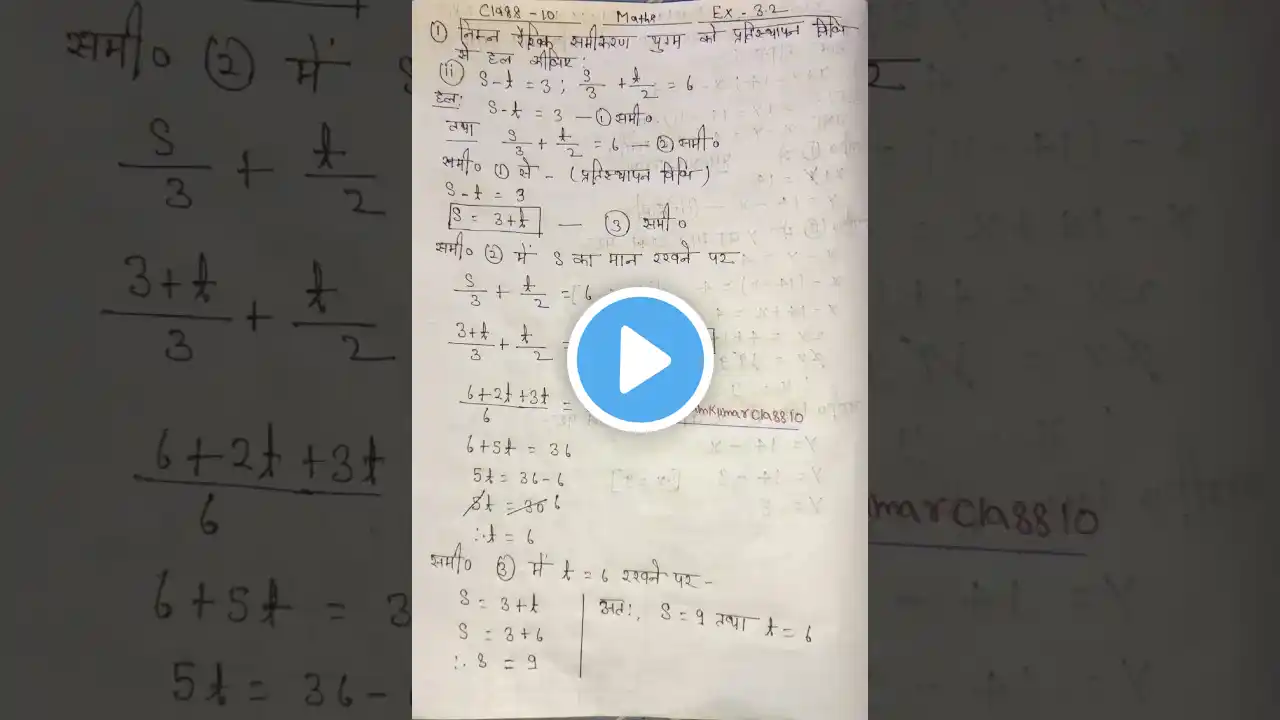 Class - 10 Maths Ex - 3.2
① निम्न रैखिक समीकरण युग्म को प्रतिस्थापन विधि
से हल कीजिए:
(ii) S - t = 3 ; S/3 + t/2 = 6
हल: S - t = 3 — ① समी०
तथा S/3 + t/2 = 6 — ② समी०
समी० ① से - (प्रतिस्थापन विधि)
S - t = 3
S = 3+t — ③ समी०
समी० ② में S का मान रखने पर
S/3 + t/2 = 6
(3+t)/3 + t/2 =
(6+2t+3t)/6 =
mKumarClass10
6+5t = 36
5t = 36-6
5t = 30 6
∴ t = 6
समी० ③ में t = 6 रखने पर -
S = 3+t
S = 3+6
∴ S = 9
अतः, S = 9 तथा t = 6